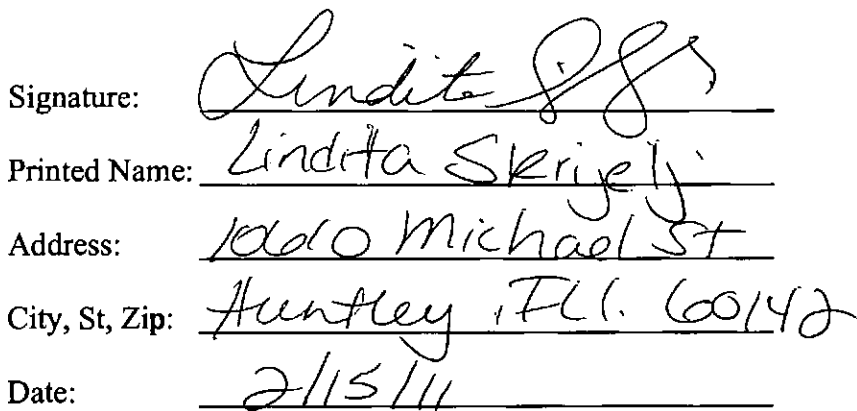 Signature: Lindita
Printed Name: Lindita Skrijelj
Address: Michael St
City, St, Zip: Huntley, ILL. 60142
Date: 2/15/11